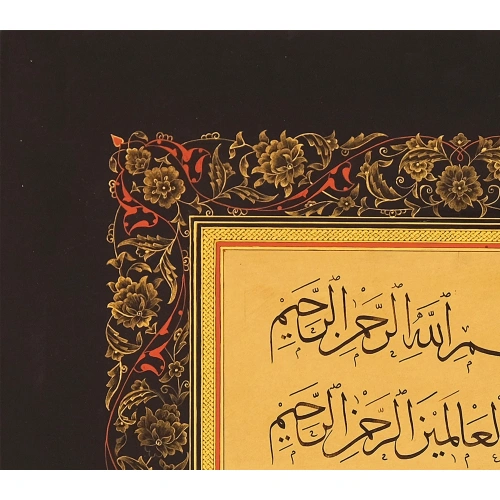 ـم الله الرحمن الرحيم
العالمين الرحمن الرحيم